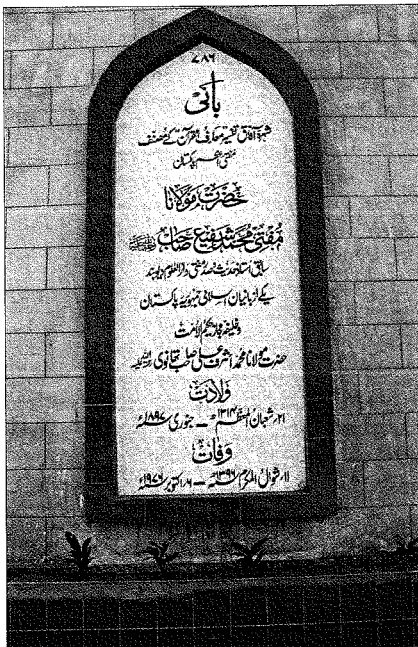 ۷۸۶
بانی
شہرۂ آفاق تفسیر معارف القرآن کے مصنف
مفتی اعظم پاکستان
حضرت مولانا
مفتی محمد شفیع صاحب
سابق استاذ حدیث وصدر مفتی دارالعلوم دیوبند
یکے از بانیان اسلامی جمہوریہ پاکستان
وخلیفہ مجاز حکیم الامت
حضرت مولانا محمد اشرف علی صاحب تھانوی
ولادت
۲۱؍شعبان المعظم ۱۳۱۴ھ – جنوری ۱۸۹۷ء
وفات
۱۱؍شوال المکرم ۱۳۹۶ھ – ۶؍اکتوبر ۱۹۷۶ء